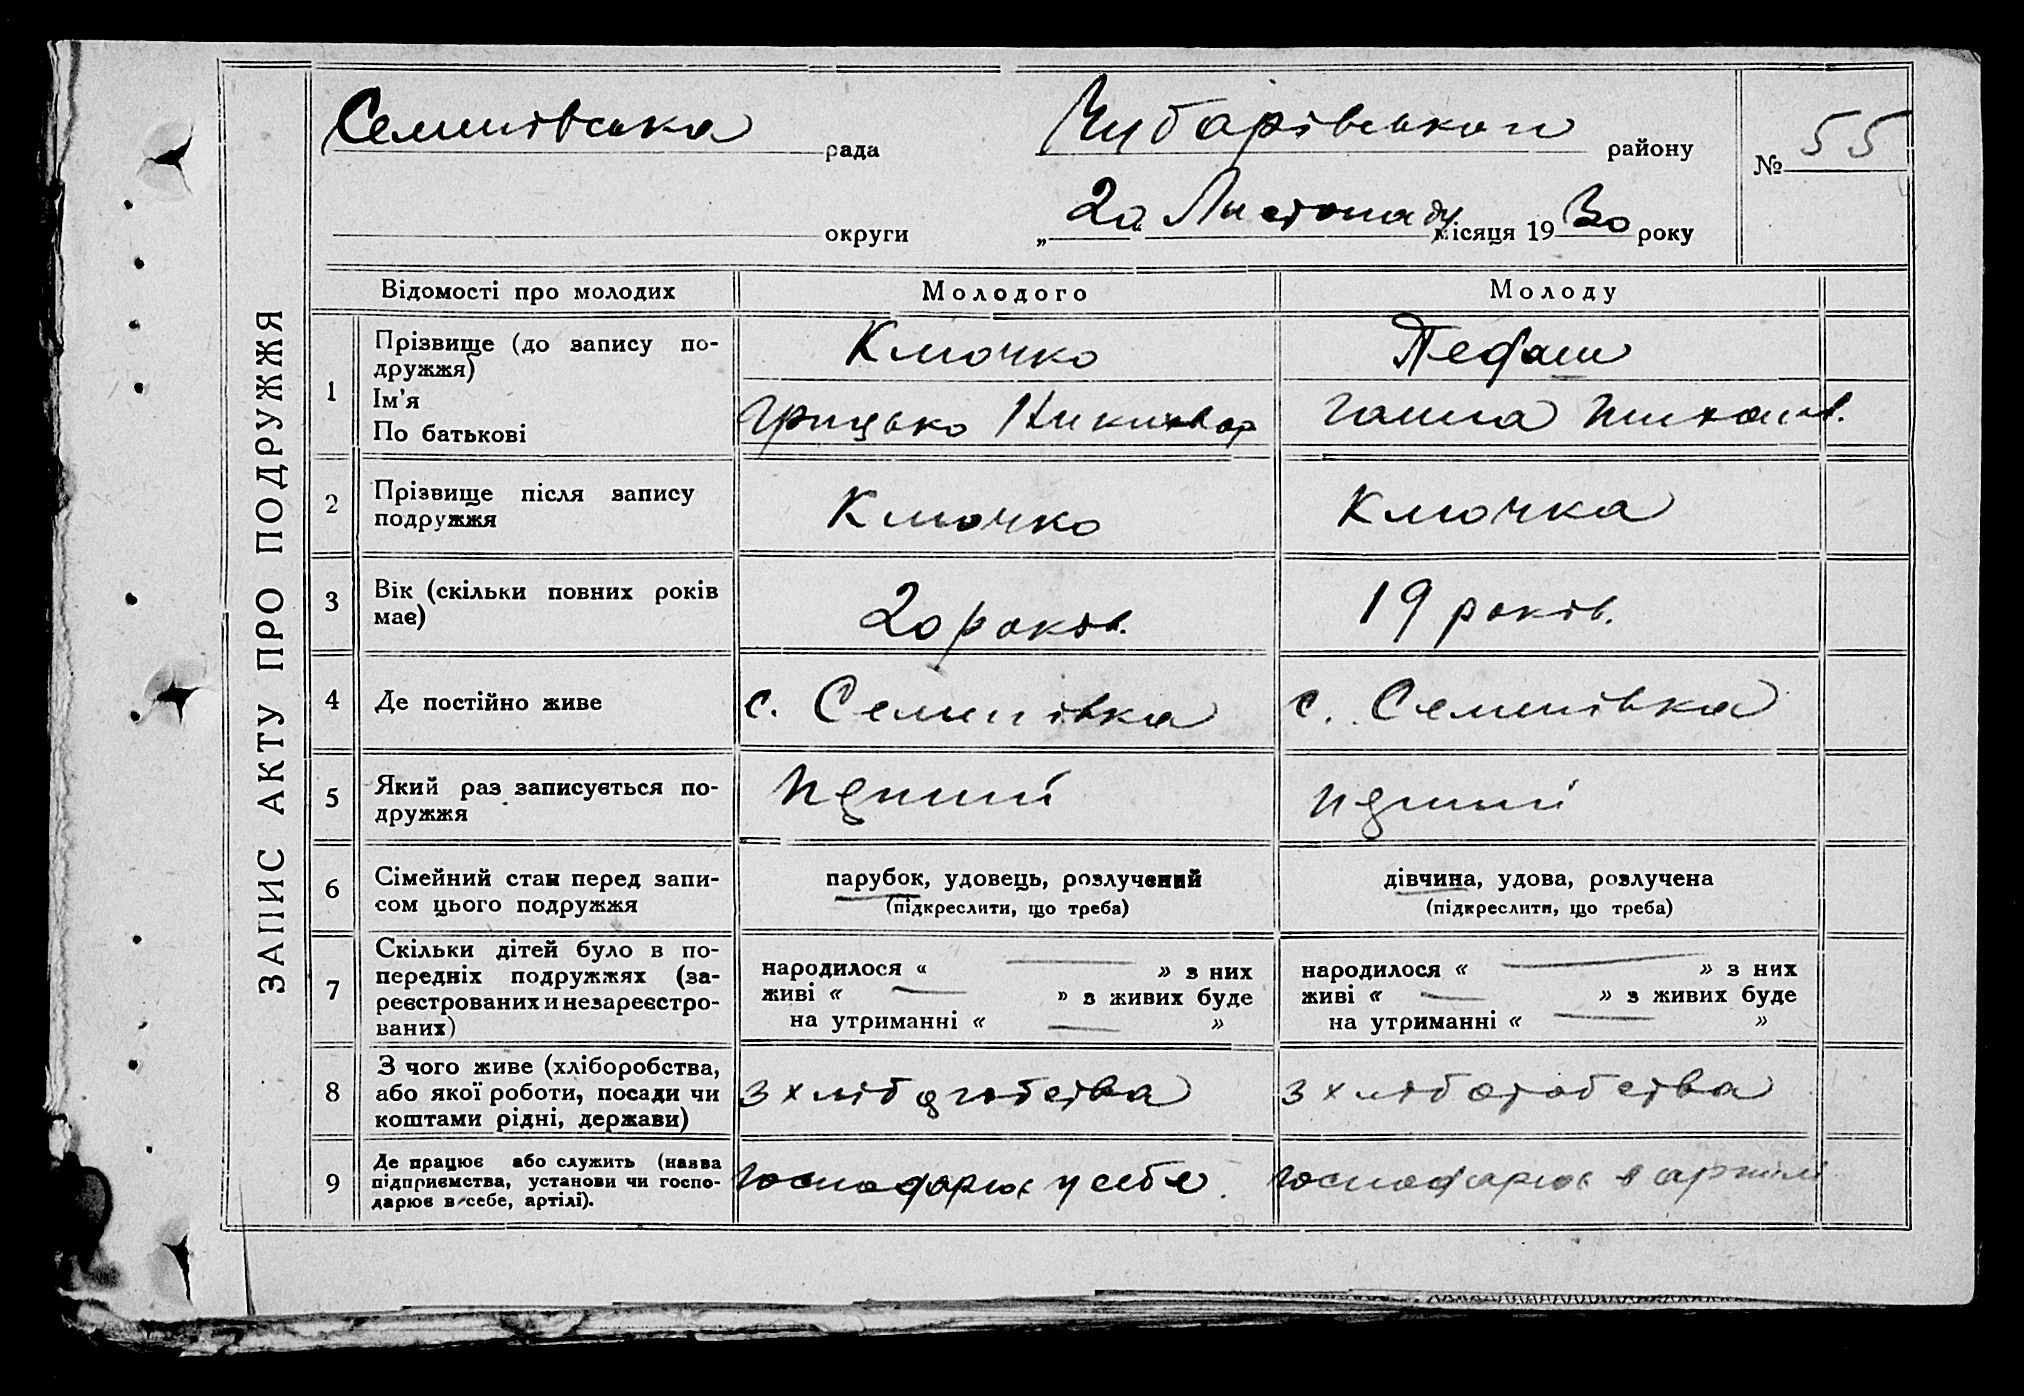 ЗАПИС АКТУ ПРО ПОДРУЖЖЯ
Семенівська рада
району
№ 55
округи
„20“ Листопаду місяця 1930 року
Відомості про молодих
Молодого
Молоду
1
Прізвище (до запису по-
дружжя)
Ім'я
По батькові
Клочко
Грицько
Ганна
2
Прізвище після запису
подружжя
Клочко
Клочка
3
Вік (скільки повних років
має)
20 років.
19 років.
4
Де постійно живе
с. Семенівка
с. Семенівка
5
Який раз записується по-
дружжя
6
Сімейний стан перед запи-
сом цього подружжя
парубок, удовець, розлучений
(підкреслити, що треба)
дівчина, удова, розлучена
(підкреслити, що треба)
7
Скільки дітей було в по-
передніх подружжях (за-
реєстрованих и незареєстро-
ваних)
народилося « — » з них
живі « — » з живих буде
на утриманні « — »
народилося « — » з них
живі « — » з живих буде
на утриманні « — »
8
З чого живе (хліборобства,
або якої роботи, посади чи
коштами рідні, держави)
з хліборобства
з хліборобства
9
Де працює або служить (назва
підприємства, установи чи госпо-
дарює в себе, артілі).
господарює у себе.
господарює в артілі